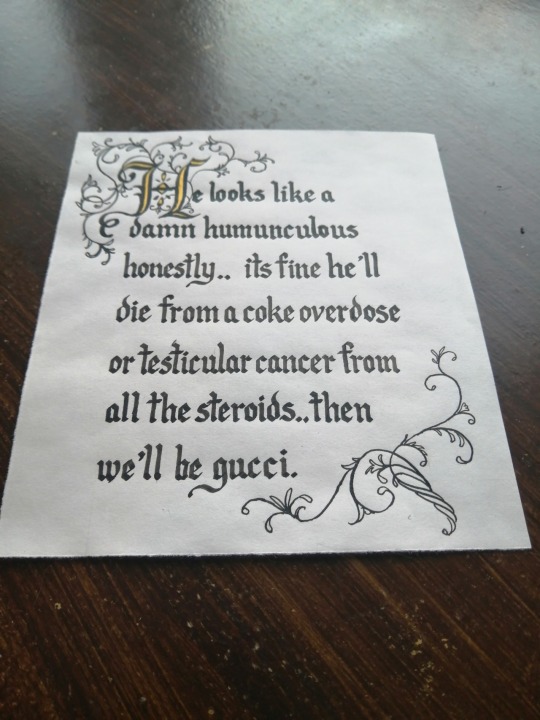 He looks like a
damn humunculous
honestly.. its fine he'll
die from a coke overdose
or testicular cancer from
all the steroids..then
we'll be gucci.